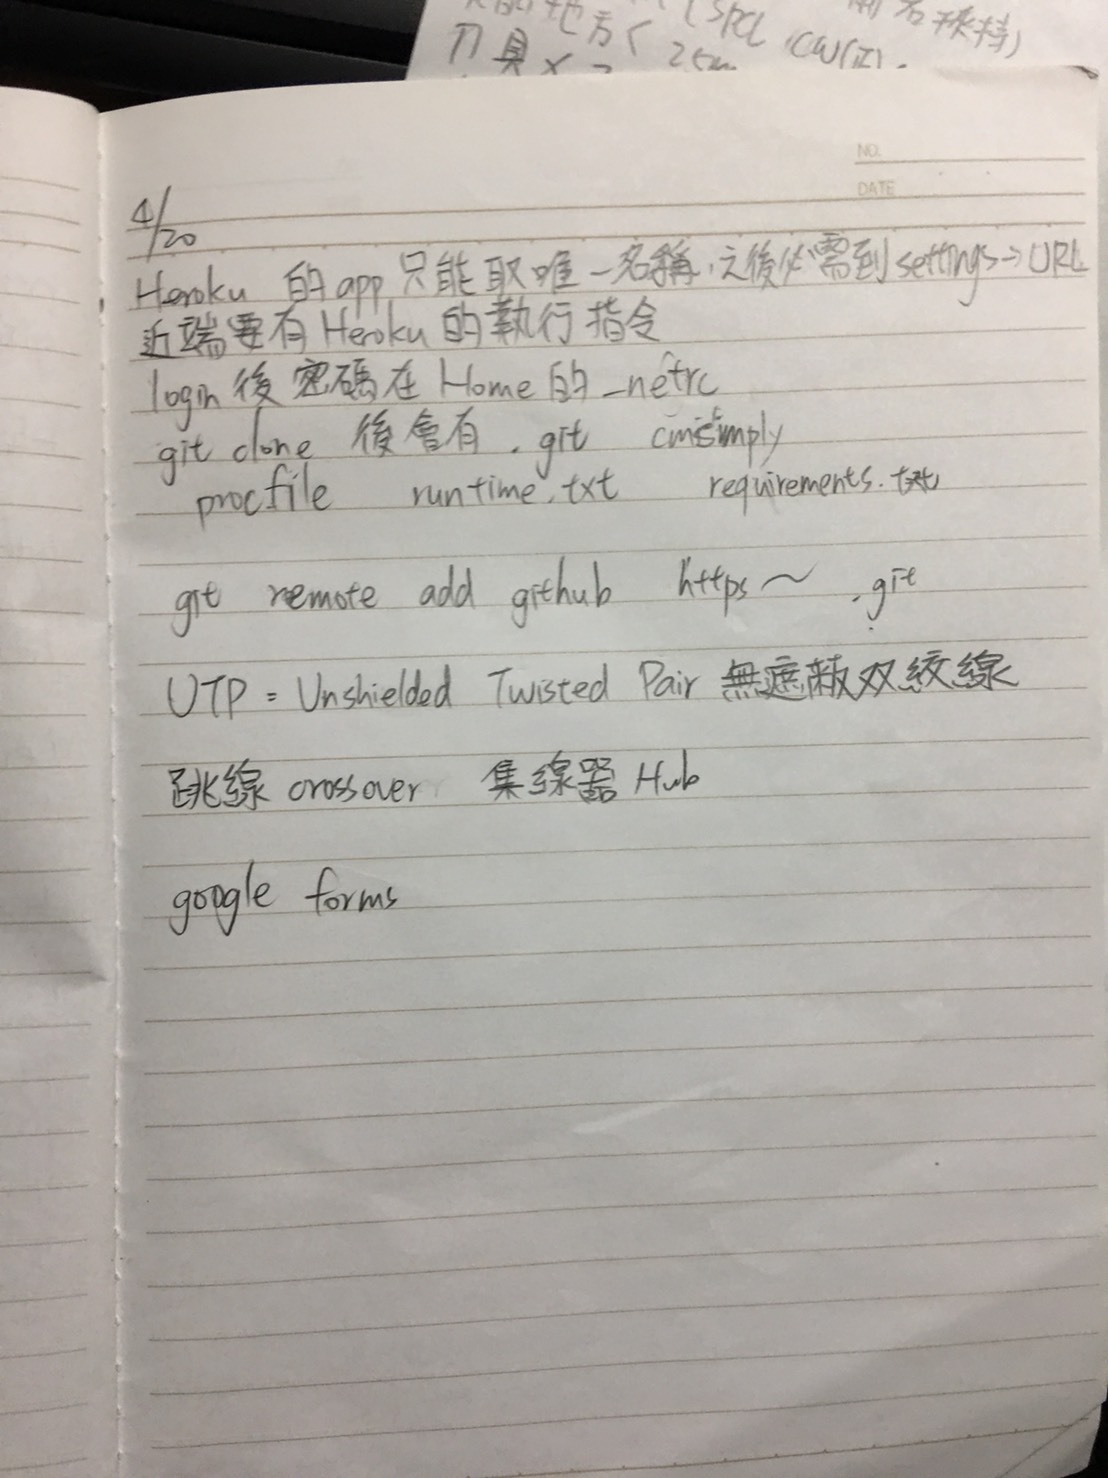 刀具 25m CW(正).
NO.
DATE
4/20
Heroku 的 app 只能取唯一名稱,之後必需到 settings→URL
近端要有 Heroku 的執行指令
login 後密碼在 Home 的 _netrc
git clone 後會有 .git cmsimply
procfile runtime.txt requirements.txt
git remote add github https~ .git
UTP = Unshielded Twisted Pair 無遮蔽双絞線
跳線 crossover 集線器 Hub
google forms